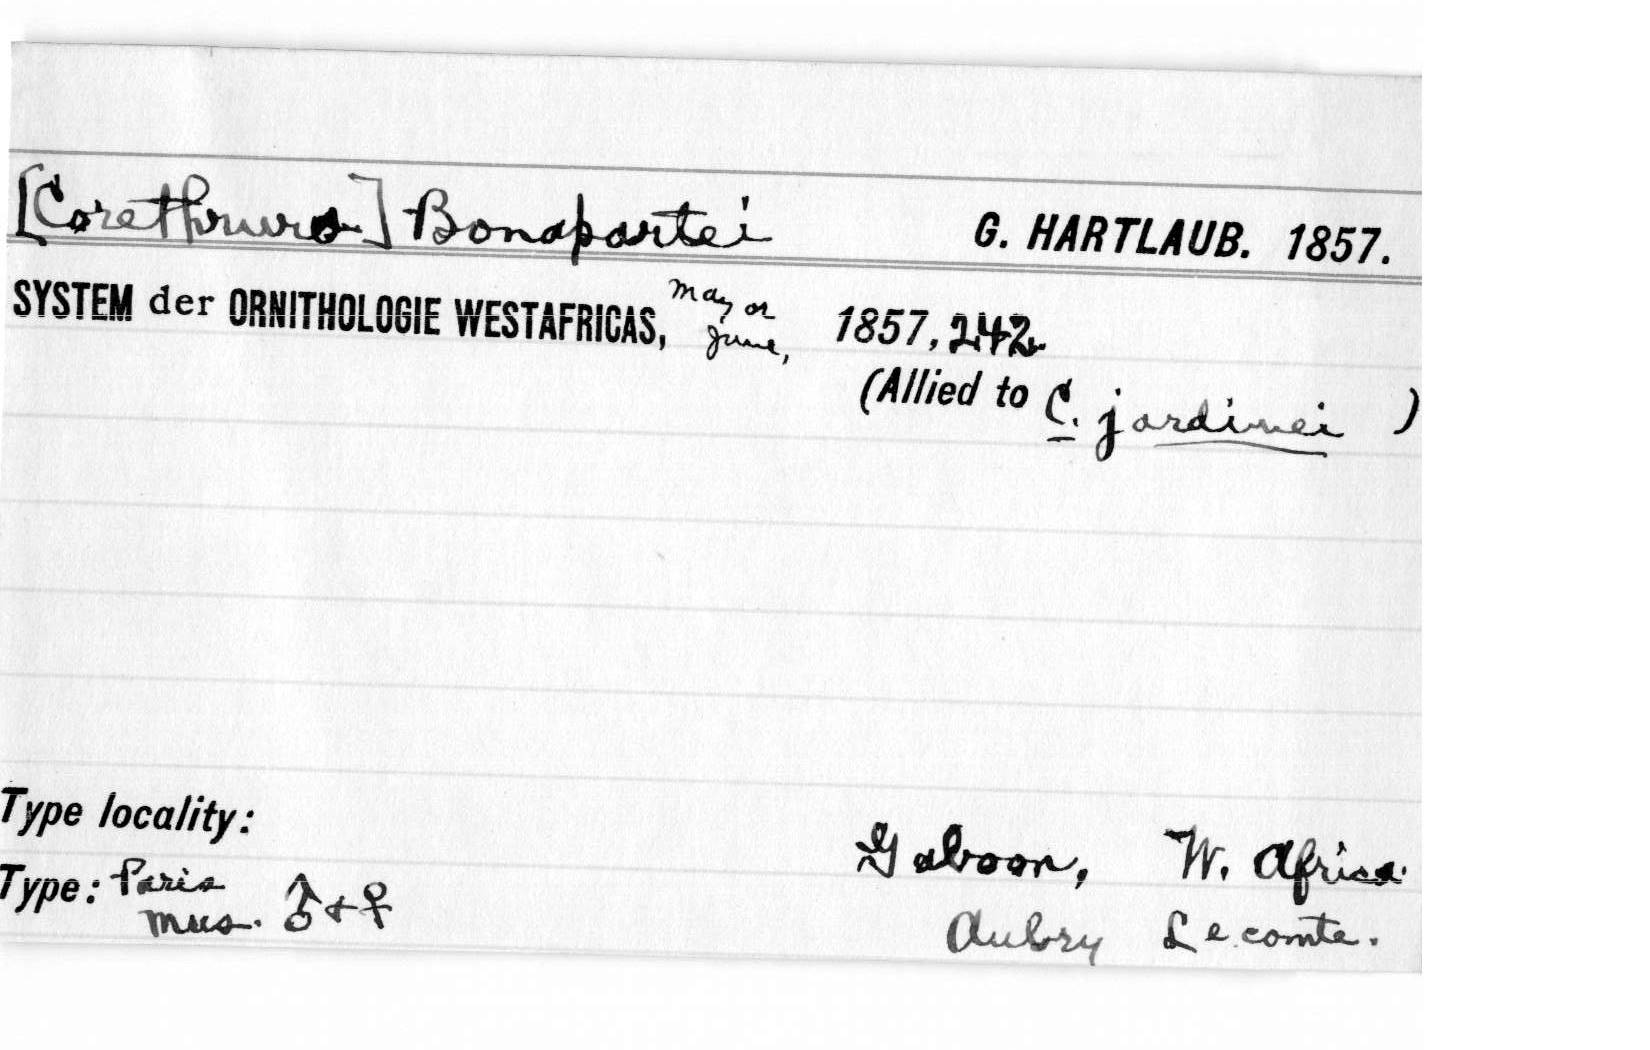 [Corethrura] Bonapartei G. HARTLAUB. 1857.
SYSTEM der ORNITHOLOGIE WESTAFRICAS, May or June, 1857, 242.
(Allied to C. jardinei )
Type locality: Gaboon, W. Africa.
Type: Paris Mus. ♂ + ♀ Aubry Lecomte.